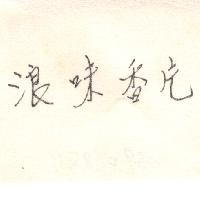 浪味香片